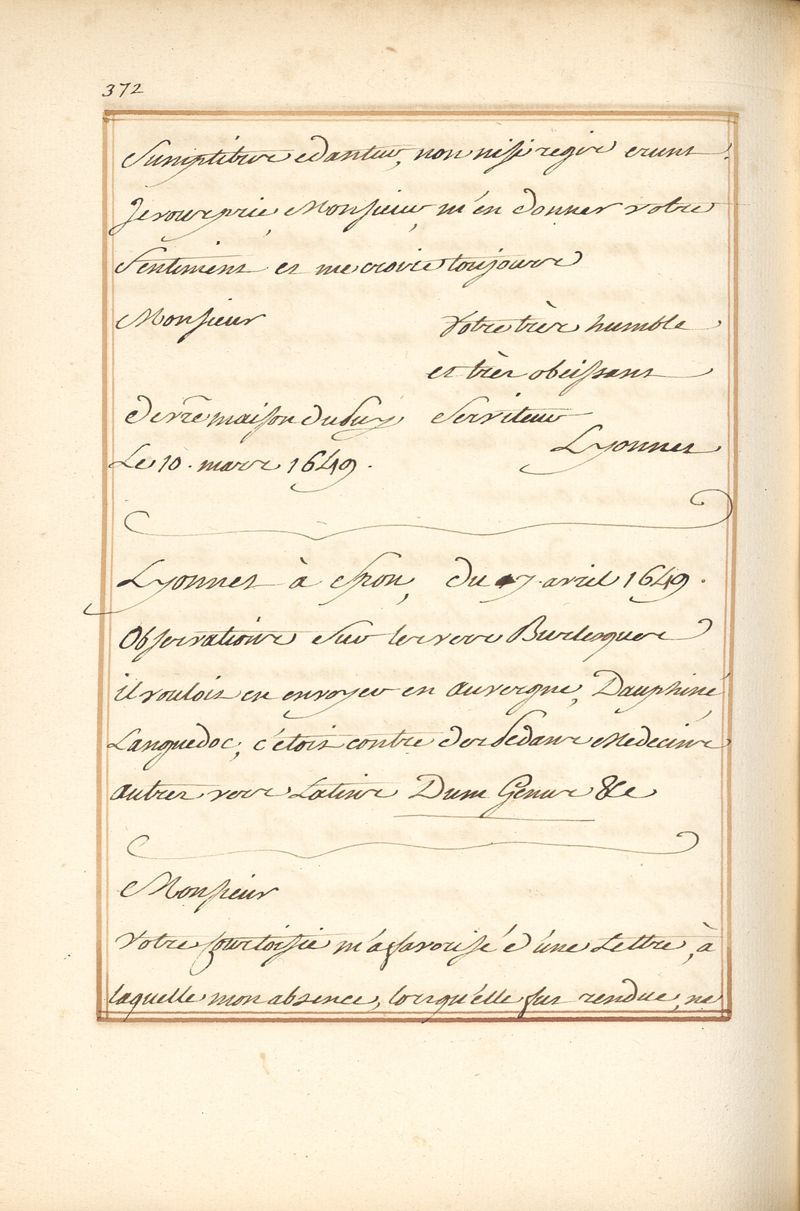 372
Sumptibus edantur, non nisi regis erunt.
Je vous prie, Monsieur, m'en donner votre
Sentiment et me croire toujours
Monsieur Votre très humble
et très obeissant
De vrẽ maison du Puy Serviteur
Le 10. mars 1649. Lyonnet
Lyonnet à Spon, du 7 avril 1649.
Observations sur les vers Burlesques
il vouloit en envoyer en auvergne, Dauphiné,
Languedoc, c'étoit contre des Pedans Medecins
autres vers Latins Dum Genus &c
Monsieur
Votre courtoisie m'a favorisé d'une Lettre, à
laquelle mon absence, lorsqu'elle fut rendue, ne